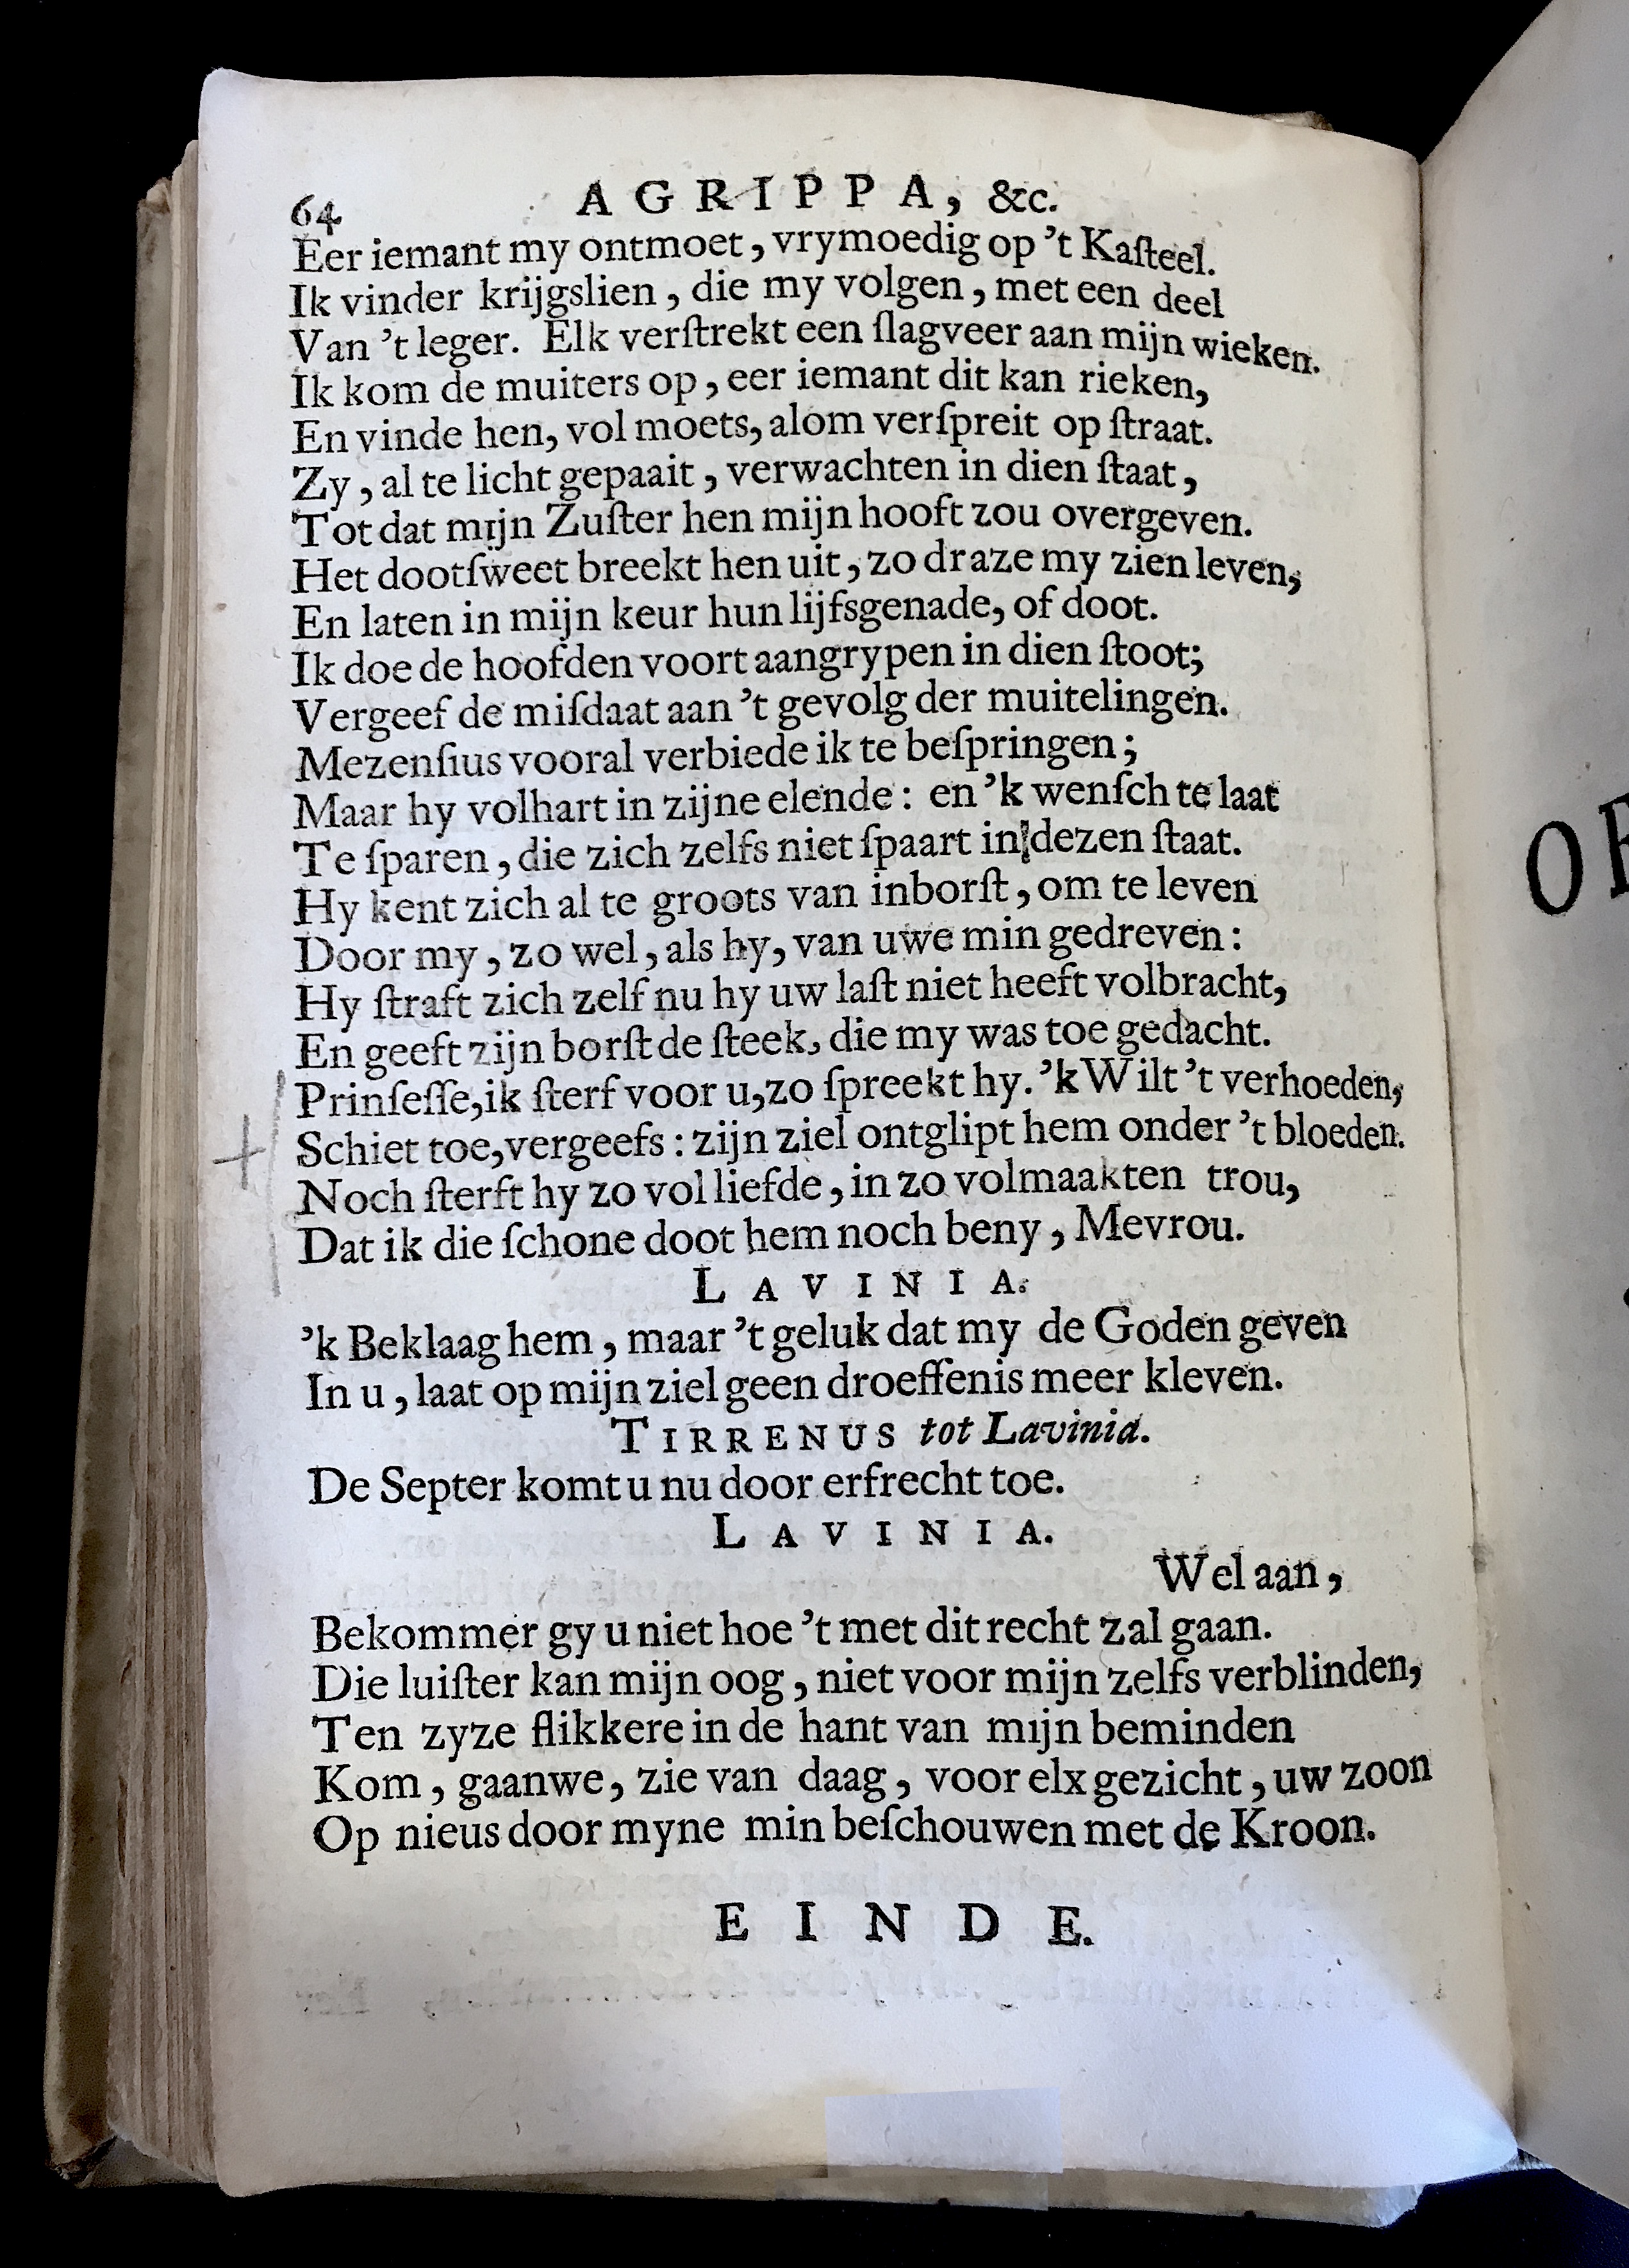 64 AGRIPPA, &c.
Eer iemant my ontmoet, vrymoedig op 't Kaſteel.
Ik vinder krijgslien, die my volgen, met een deel
Van 't leger. Elk verſtrekt een ſlagveer aan mijn wieken.
Ik kom de muiters op, eer iemant dit kan rieken,
En vinde hen, vol moets, alom verſpreit op ſtraat.
Zy, al te licht gepaait, verwachten in dien ſtaat,
Tot dat mijn Zuſter hen mijn hooft zou overgeven.
Het dootſweet breekt hen uit, zo draze my zien leven,
En laten in mijn keur hun lijfsgenade, of doot.
Ik doe de hoofden voort aangrypen in dien ſtoot;
Vergeef de miſdaat aan 't gevolg der muitelingen.
Mezenſius vooral verbiede ik te beſpringen;
Maar hy volhart in zijne elende: en 'k wenſch te laat
Te ſparen, die zich zelfs niet ſpaart in dezen ſtaat.
Hy kent zich al te groots van inborſt, om te leven
Door my, zo wel, als hy, van uwe min gedreven:
Hy ſtraft zich zelf nu hy uw laſt niet heeft volbracht,
En geeft zijn borſt de ſteek, die my was toe gedacht.
Prinſeſſe, ik ſterf voor u, zo ſpreekt hy. 'k Wilt 't verhoeden,
Schiet toe, vergeefs: zijn ziel ontglipt hem onder 't bloeden.
Noch ſterft hy zo vol liefde, in zo volmaakten trou,
Dat ik die ſchone doot hem noch beny, Mevrou.
LAVINIA.
'k Beklaag hem, maar 't geluk dat my de Goden geven
In u, laat op mijn ziel geen droeffenis meer kleven.
TIRRENUS tot Lavinia.
De Septer komt u nu door erfrecht toe.
LAVINIA.
Wel aan,
Bekommer gy u niet hoe 't met dit recht zal gaan.
Die luiſter kan mijn oog, niet voor mijn zelfs verblinden,
Ten zyze flikkere in de hant van mijn beminden
Kom, gaanwe, zie van daag, voor elx gezicht, uw zoon
Op nieus door myne min beſchouwen met de Kroon.
EINDE.